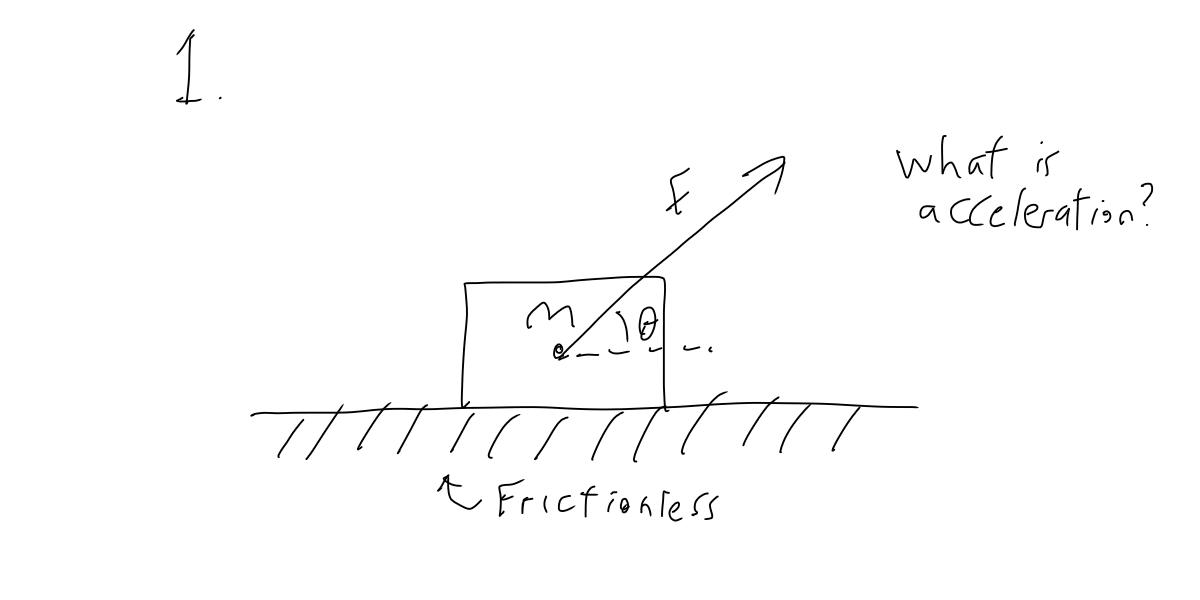 1.
F
What is
acceleration?
m
θ
Frictionless